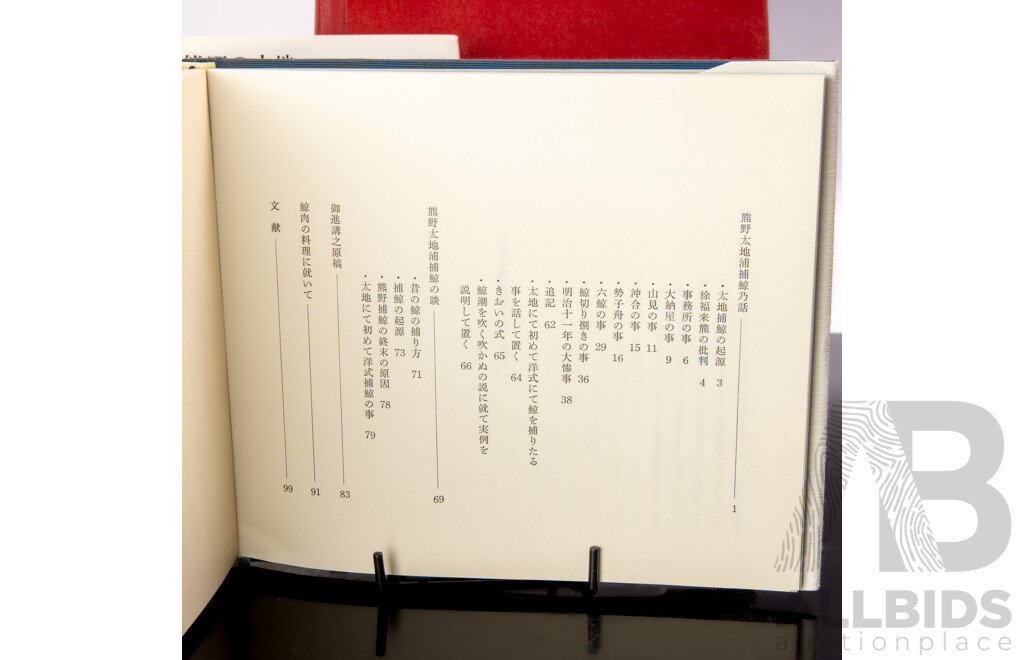 熊野太地浦捕鯨乃話 1
・太地捕鯨の起源 3
・徐福来熊の批判 4
・事務所の事 6
・大納屋の事 9
・山見の事 11
・沖合の事 15
・勢子舟の事 16
・六鯨の事 29
・鯨切り捌きの事 36
・明治十一年の大惨事 38
・追記 62
・太地にて初めて洋式にて鯨を捕りたる
事を話して置く 64
・きおいの式 65
・鯨潮を吹く吹かぬの説に就て実例を
説明して置く 66
熊野太地浦捕鯨の談 69
・昔の鯨の捕り方 71
・捕鯨の起源 73
・熊野捕鯨の終末の原因 78
・太地にて初めて洋式捕鯨の事 79
御進講之原稿 83
鯨肉の料理に就いて 91
文献 99
ALLBIDS
auctionplace